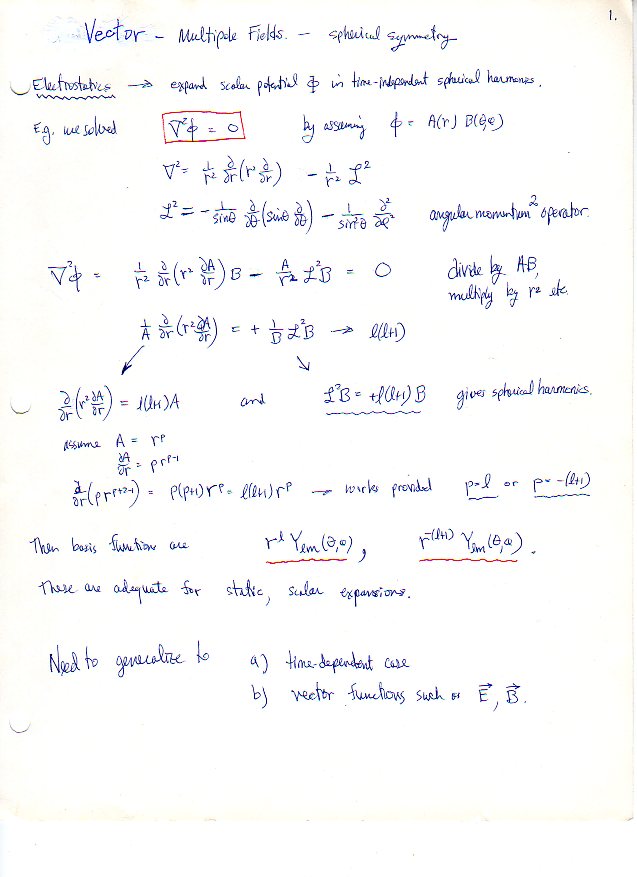 1.
Vector - Multipole Fields. - spherical symmetry
Electrostatics → expand scalar potential Φ in time-independent spherical harmonics.
E.g. we solved ∇²φ = 0 by assuming φ = A(r) B(θ,φ)
∇² = 1/r² ∂/∂r (r ∂/∂r) - 1/r² ℒ²
ℒ² = - 1/sinθ ∂/∂θ (sinθ ∂/∂θ) - 1/sin²θ ∂²/∂φ² angular momentum² operator.
∇²φ = 1/r² ∂/∂r (r² ∂A/∂r) B - A/r² ℒ²B = 0 divide by AB,
multiply by r² etc.
1/A ∂/∂r (r² ∂A/∂r) = + 1/B ℒ²B → l(l+1)
∂/∂r (r² ∂A/∂r) = l(l+1)A and ℒ²B = +l(l+1) B gives spherical harmonics.
assume A = r^p
∂A/∂r = p r^{p-1}
∂/∂r (p r^{p+2-1}) = p(p+1) r^p = l(l+1) r^p → works provided p=l or p = -(l+1)
Then basis function are r^l Y_{lm}(θ,φ), r^{-(l+1)} Y_{lm}(θ,φ).
These are adequate for static, scalar expansions.
Need to generalize to a) time-dependent case
b) vector functions such as E⃗, B⃗.